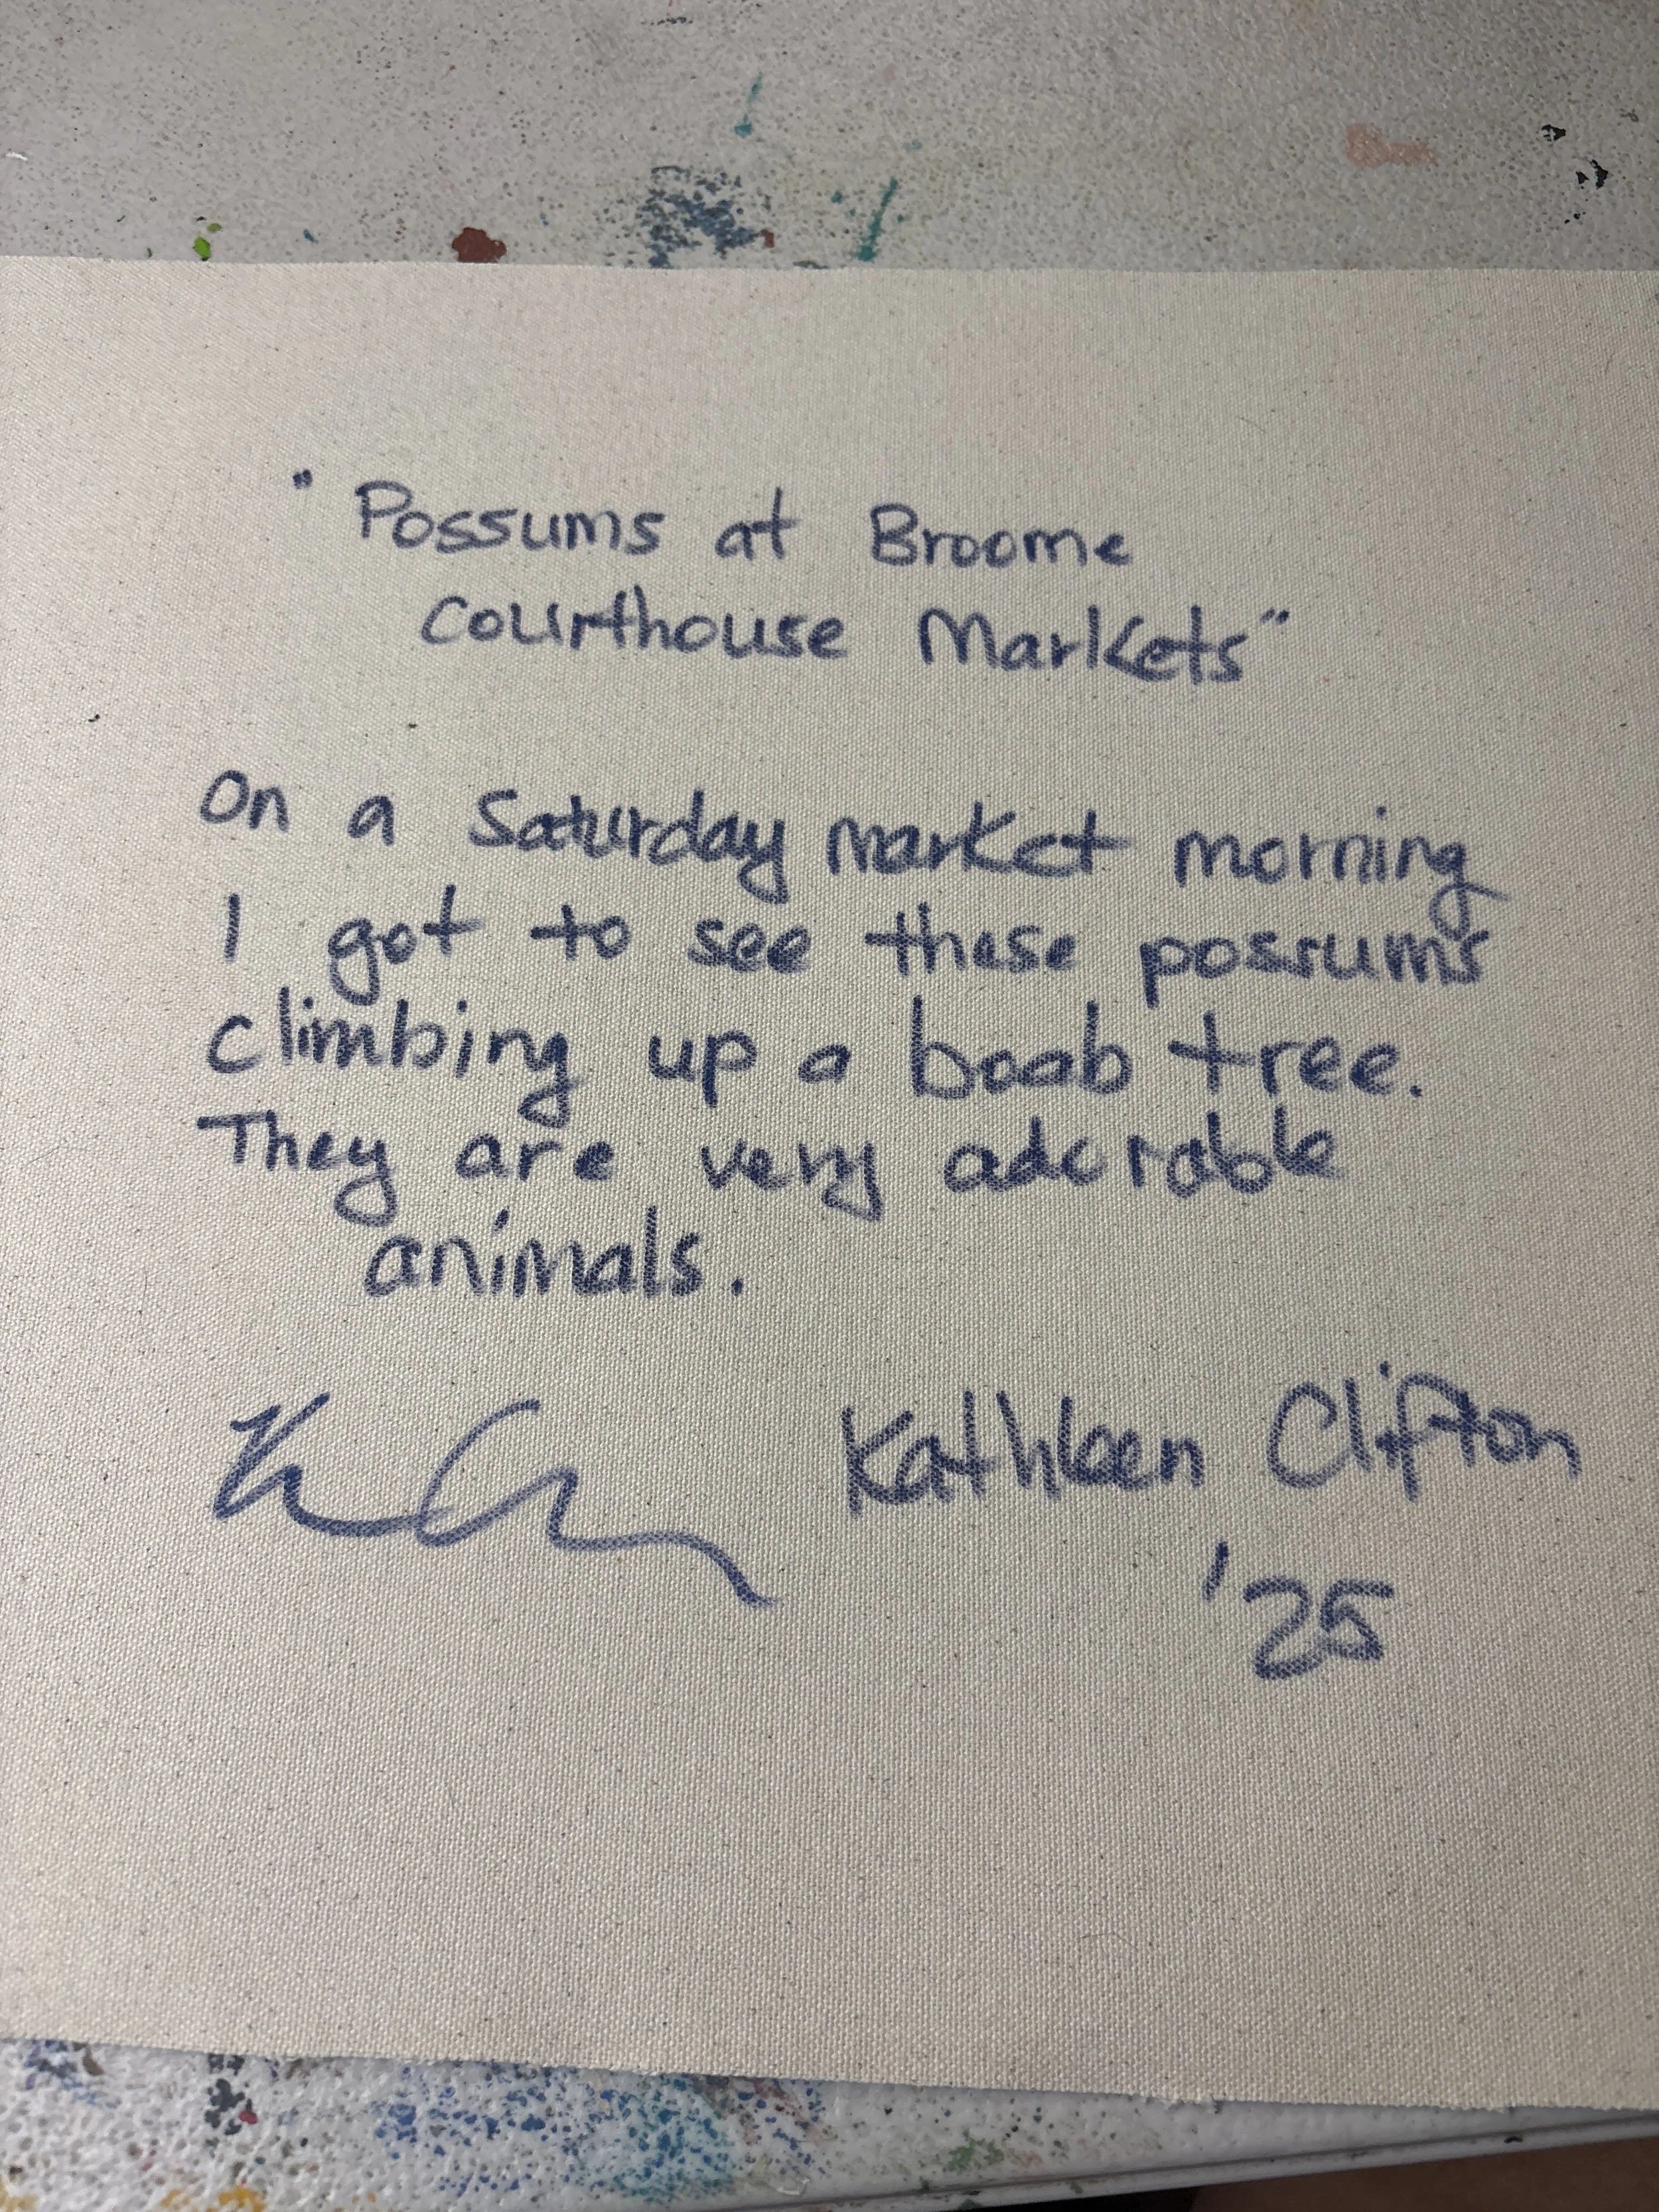 "Possums at Broome
Courthouse Markets"
On a Saturday market morning
I got to see these possums
climbing up a boab tree.
They are very adorable
animals.
Kathleen Clifton
'25